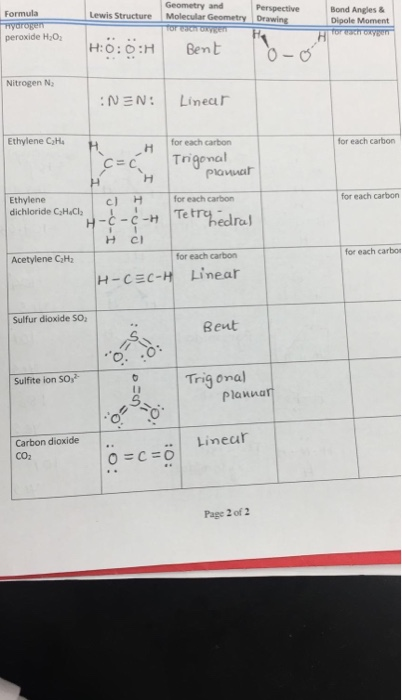 Formula Lewis Structure Geometry and Molecular Geometry Perspective Drawing Bond Angles & Dipole Moment
Hydrogen peroxide H₂O₂ H:O:O:H for each oxygen Bent H O-O H for each oxygen
Nitrogen N₂ :N≡N: Linear
Ethylene C₂H₄ H H C=C H H for each carbon Trigonal plannar for each carbon
Ethylene dichloride C₂H₄Cl₂ Cl H H-C-C-H H Cl for each carbon Tetrahedral for each carbon
Acetylene C₂H₂ H-C≡C-H for each carbon Linear for each carbon
Sulfur dioxide SO₂ S O O Bent
Sulfite ion SO₃²⁻ O S O O Trigonal plannar
Carbon dioxide CO₂ O=C=O Linear
Page 2 of 2